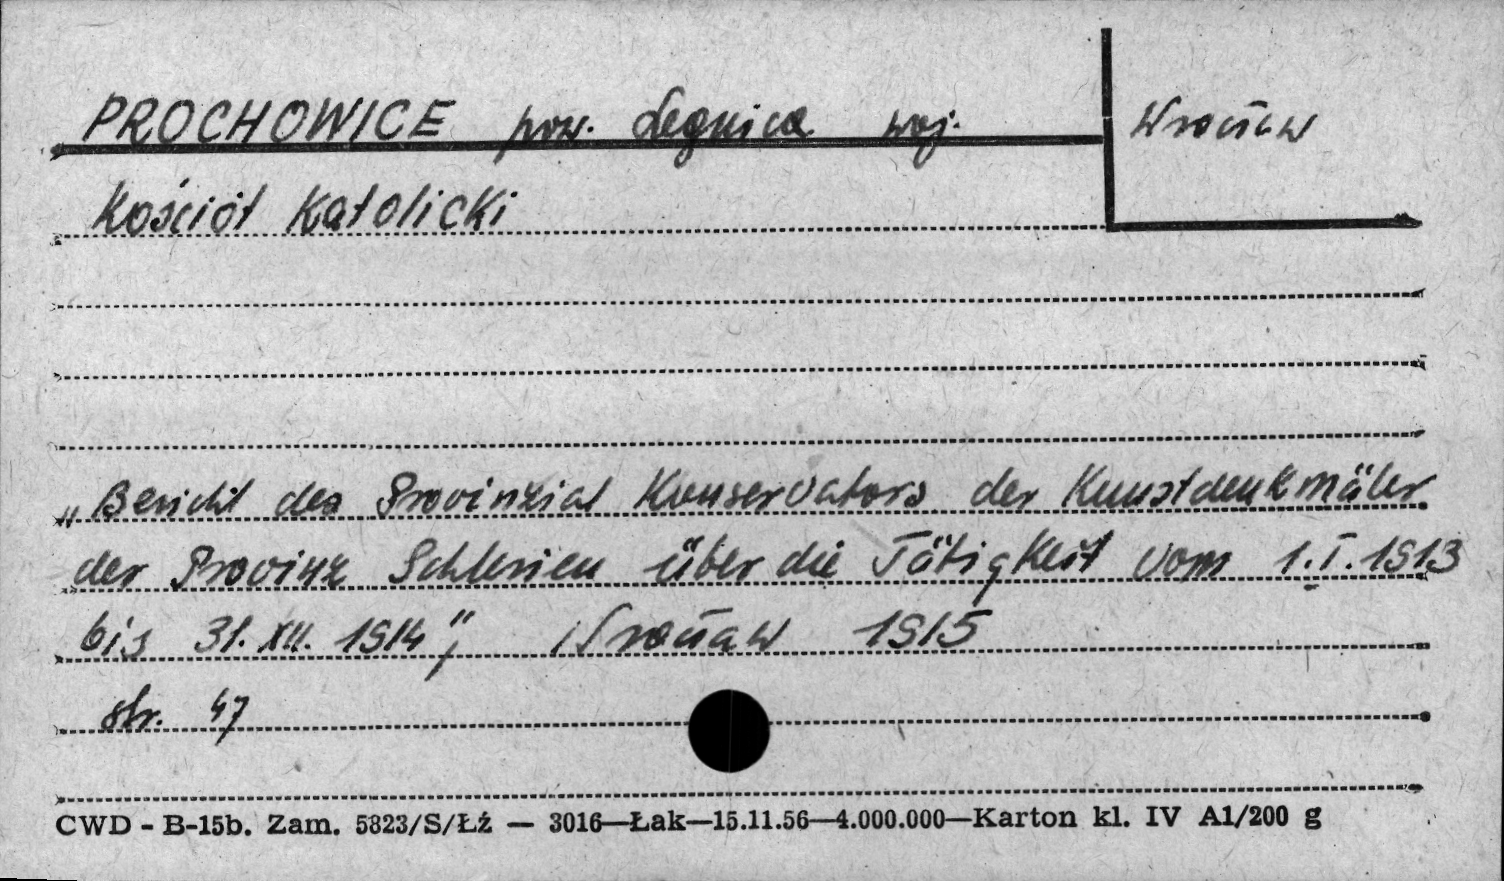 PROCHOWICE pow. Legnica woj. Wrocław
Kościół Katolicki
„Bericht des Provinzial Konservators der Kunstdenkmäler
der Provinz Schlesien über die Tätigkeit vom 1.I.1913
bis 31.XII.1914", Wrocław 1915
str. 47
CWD - B-15b. Zam. 5823/S/Łź — 3016—Łak—15.11.56—4.000.000—Karton kl. IV A1/200 g